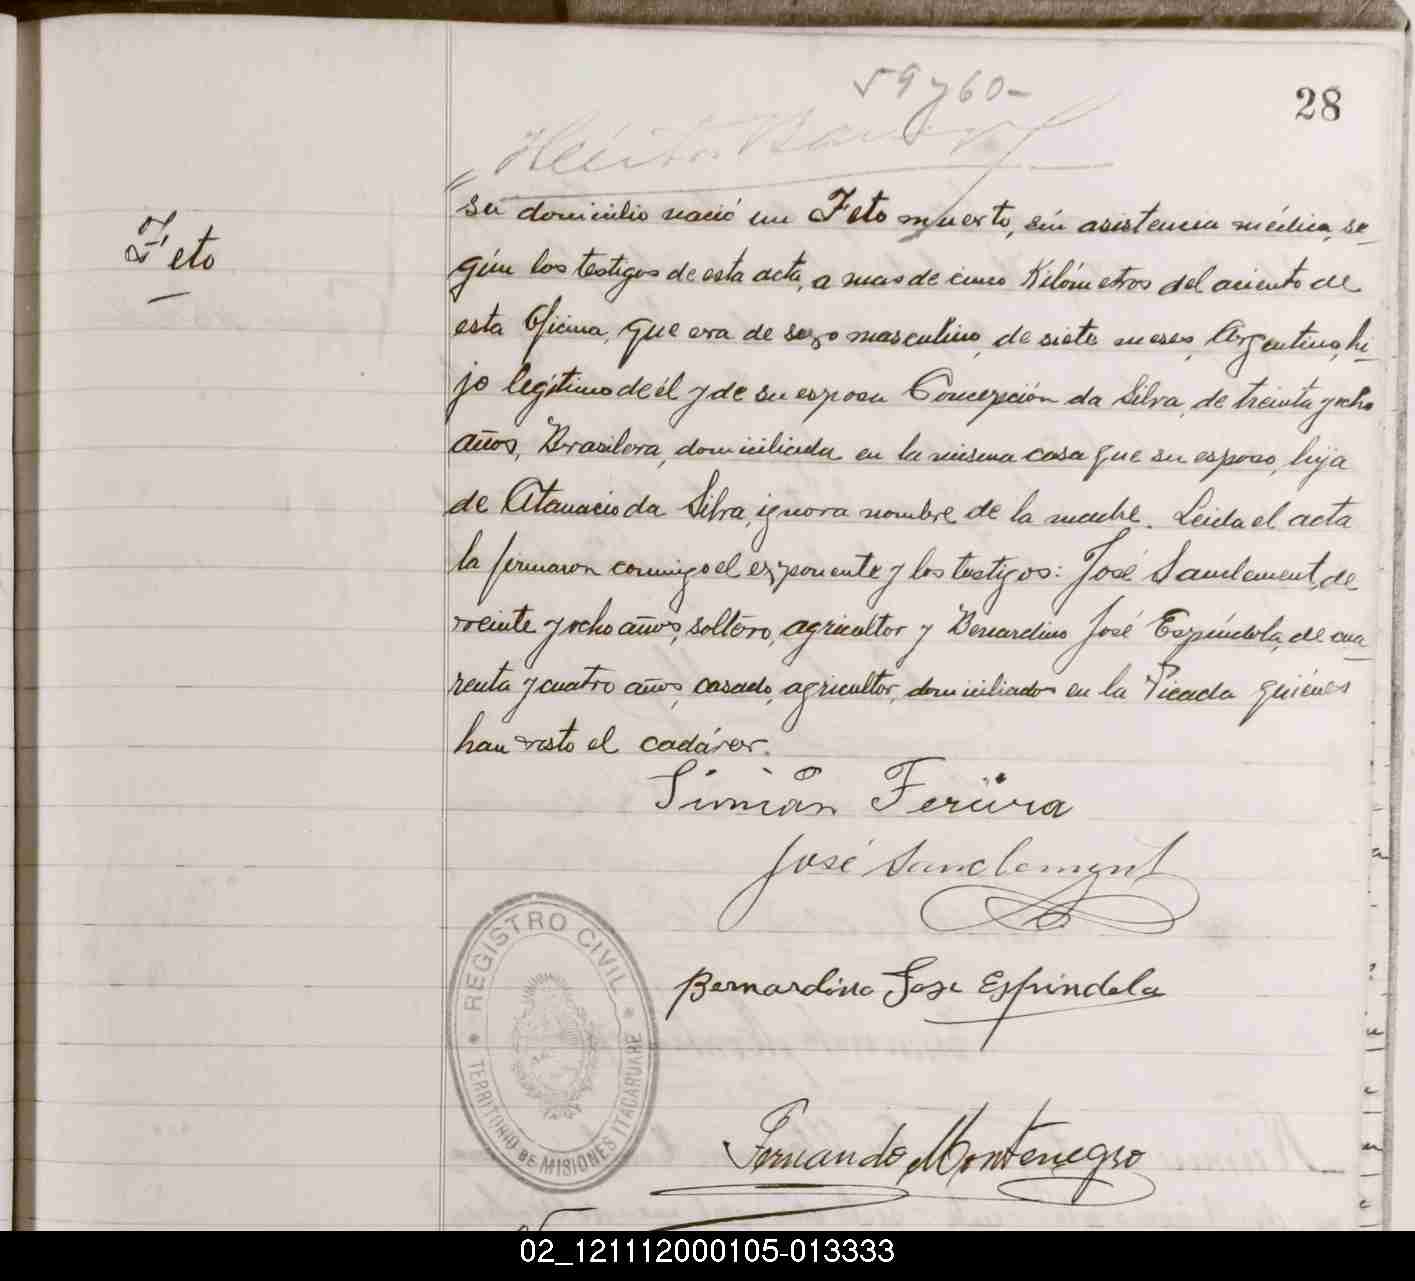 59 y 60-
28
Feto
su domicilio nació un Feto muerto, sin asistencia médica, se-
gún los testigos de esta acta, a mas de cinco Kilómetros del asiento de
esta Oficina, que era de sexo masculino, de siete meses, Argentino, hi-
jo legítimo de él y de su esposa Concepción da Silva, de treinta y ocho
años, Brasilera, domiciliada en la misma casa que su esposo, hija
de Atanacio da Silva, ignora nombre de la madre. Leida el acta
la firmaron conmigo el exponente y los testigos: José Sanclement, de
veinte y ocho años, soltero, agricultor y Bernardino José Espíndola, de cua-
renta y cuatro años, casado, agricultor, domiciliados en la Picada quiénes
han visto el cadáver.
Simián Fereira
José Sanclement
Bernardino Jose Espindola
REGISTRO CIVIL
TERRITORIO DE MISIONES ITACARUARE
Fernando Montenegro
02_121112000105-013333